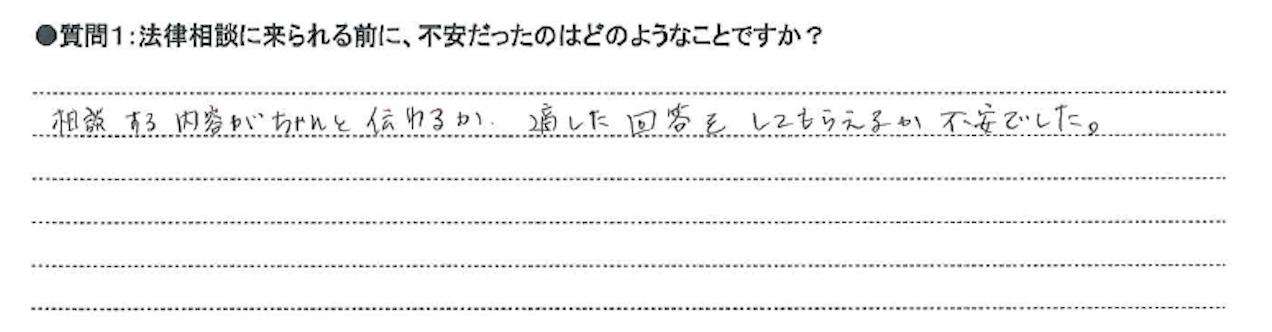 ●質問1:法律相談に来られる前に、不安だったのはどのようなことですか？
相談する内容がちゃんと伝わるか、適した回答をしてもらえるか不安でした。